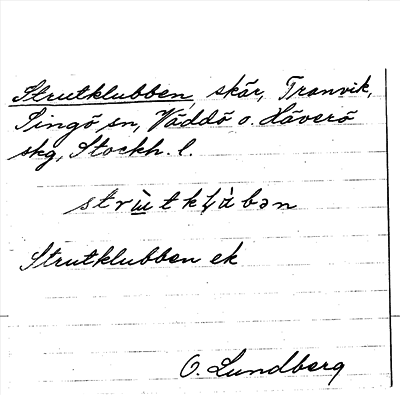 Strutklubben, skär, Tranvik,
Singö sn, Väddö o. Häverö
skg, Stockh. l.
strùtkl̥àbən
Strutklubben ek
O. Lundberg